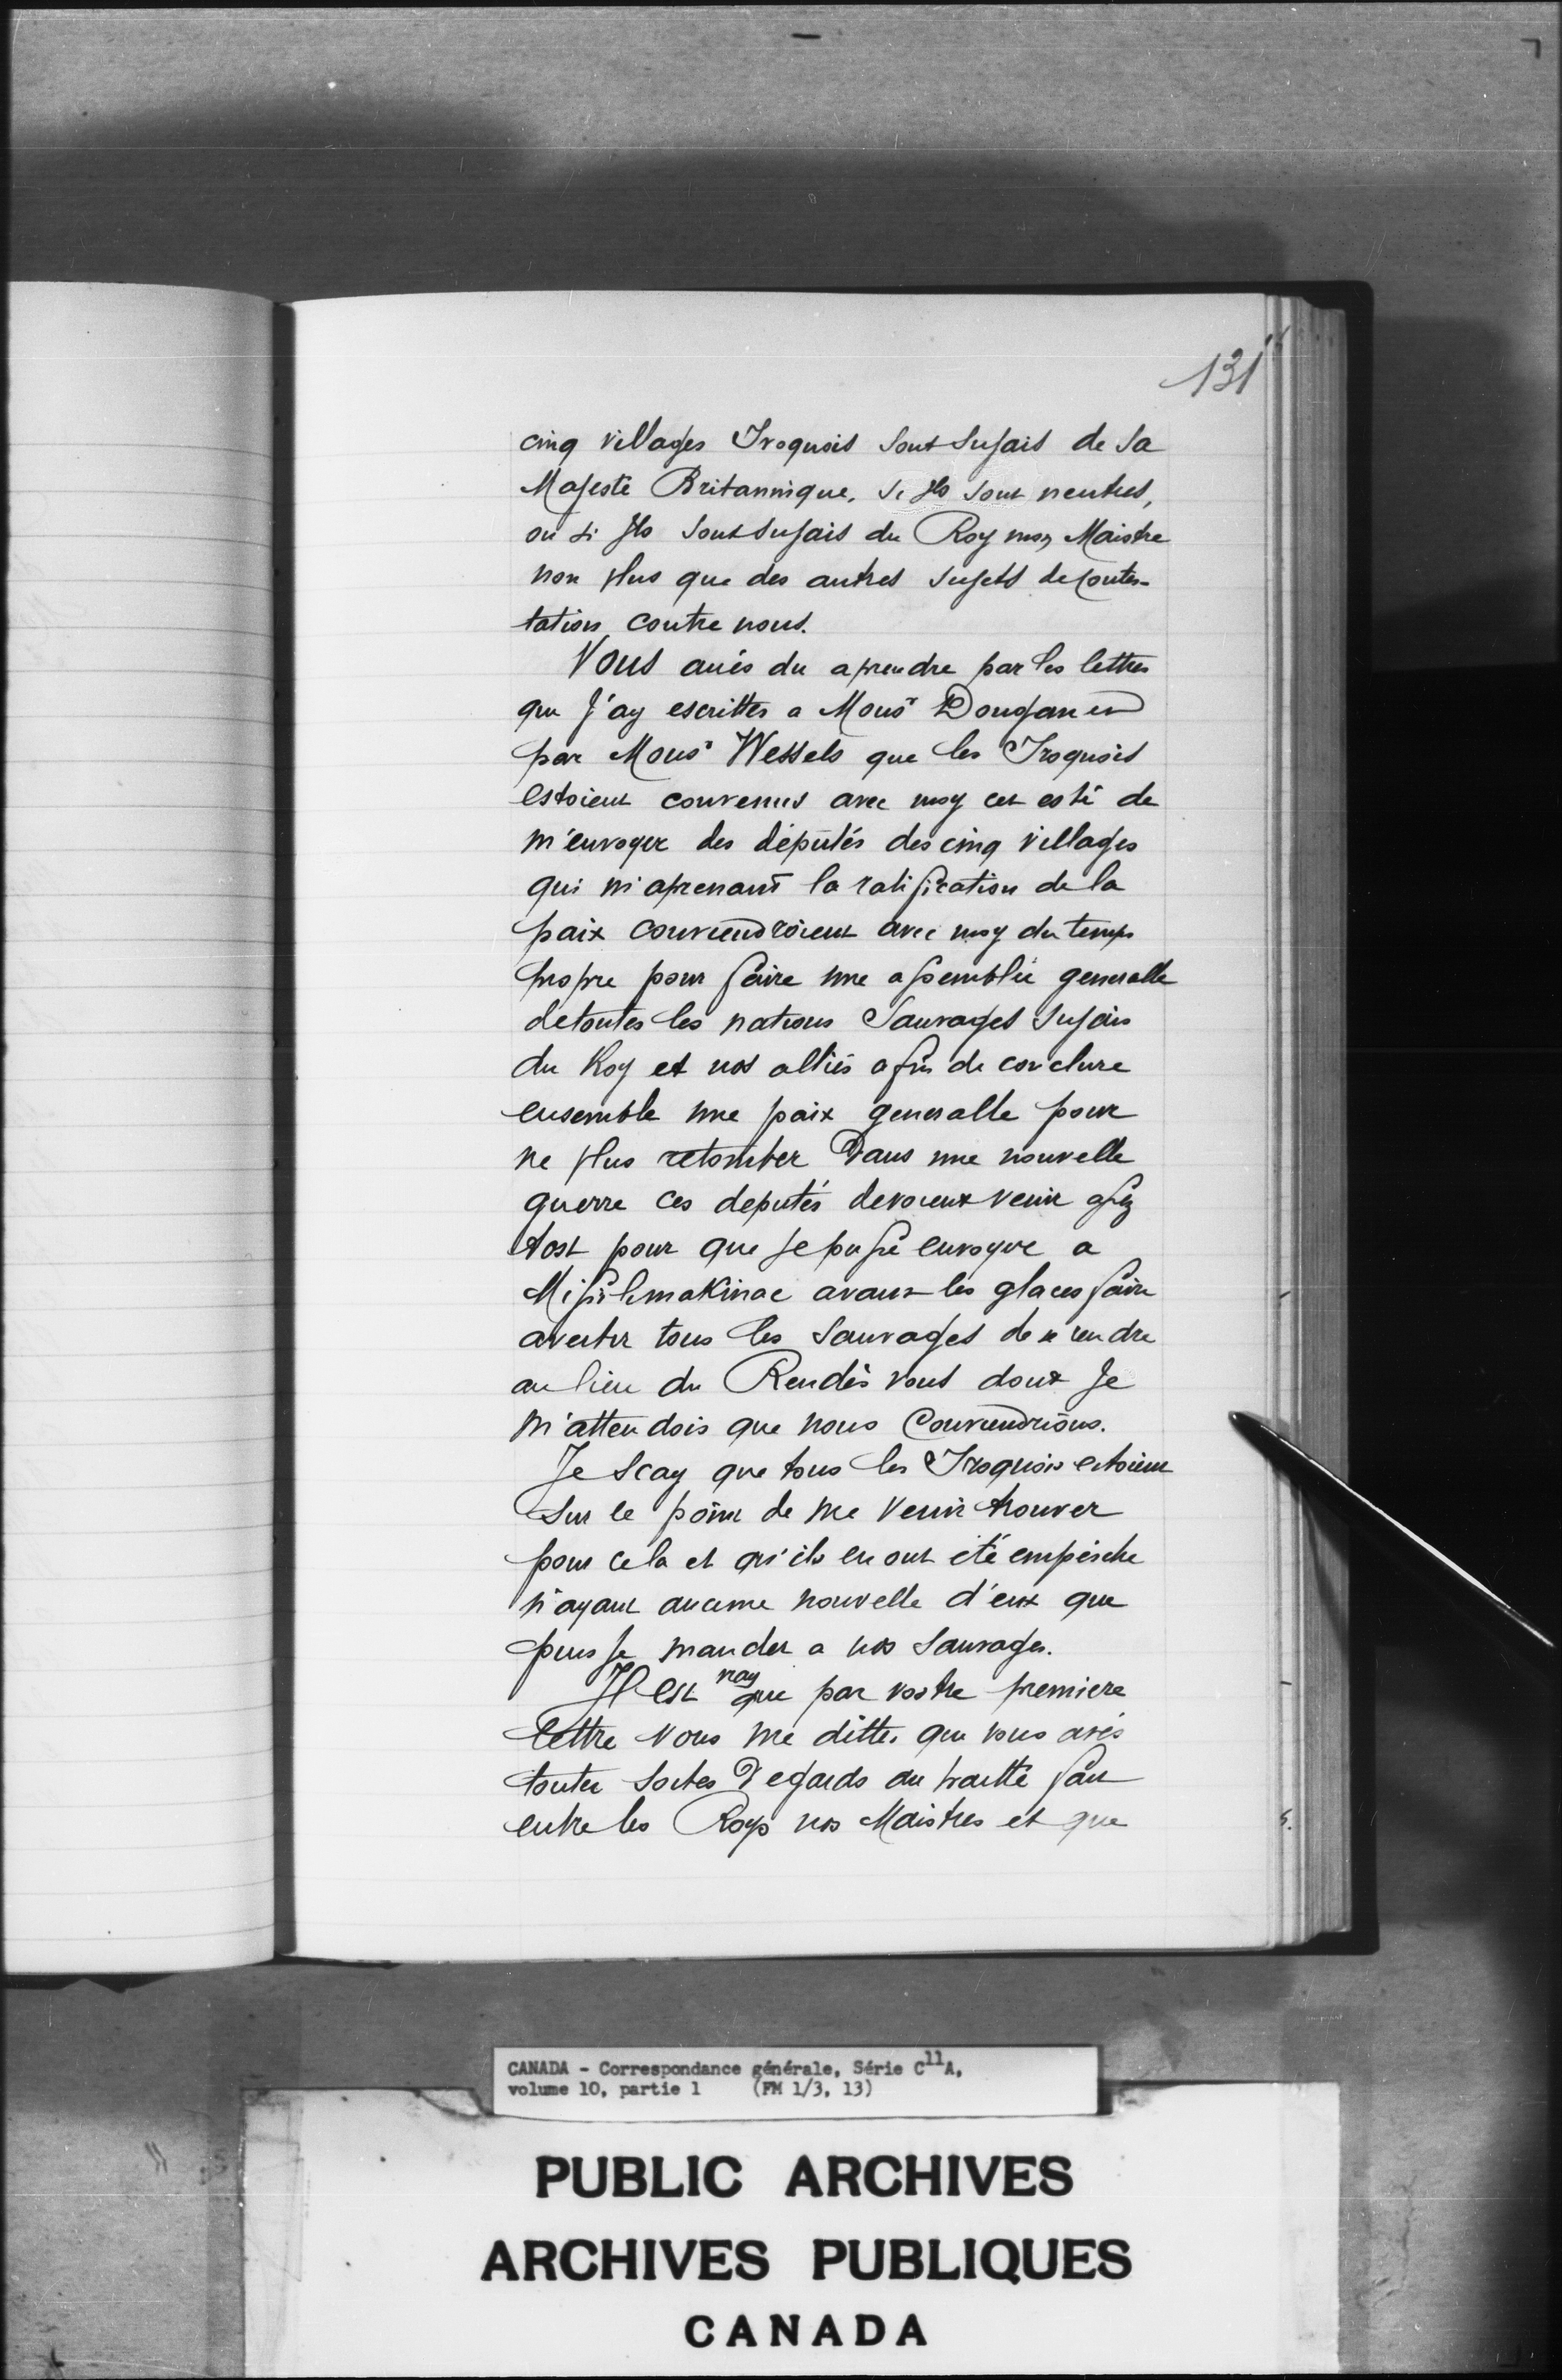 131
cinq villages Iroquois sont sujais de sa
Majesté Britannique, si Ils sont neutres,
ou si Ils sont sujais du Roy mon Maistre
non plus que des autres sujets de contes-
tation contre nous.
Vous aués du aprendre par les lettres
que J'ay escrittes a Monsr Dongan et
par Monsr Wessels que les Iroquois
estoient convenus avec moy cet esté de
m'envoyer des députés des cinq villages
qui m'aprenant la ratification de la
paix conviendroient avec moy du temps
propre pour faire une assemblée generalle
de toutes les nations Sauvages sujais
du Roy et nos alliés afin de conclure
ensemble une paix generalle pour
ne plus retomber dans une nouvelle
guerre ces deputés devoient venir assez
tost pour que je pusse envoyer a
Missilimakinac avant les glaces faire
avertir tous les Sauvages de se rendre
au lieu du Rendès vous dont Je
m'attendois que nous Conviendrions.
Je Scay que tous les Iroquois estoient
sur le point de me venir trouver
pour cela et qu'ils en ont été empesche
n'ayant aucune nouvelle d'eux que
puisse mander a nos Sauvages.
Il est vray que par vostre premiere
lettre vous me dittes que vous avés
toutes sortes d'egards au traitté fait
entre les Roys nos Maistres et que
CANADA - Correspondance générale, Série C11A,
volume 10, partie 1 (FM 1/3, 13)
PUBLIC ARCHIVES
ARCHIVES PUBLIQUES
CANADA